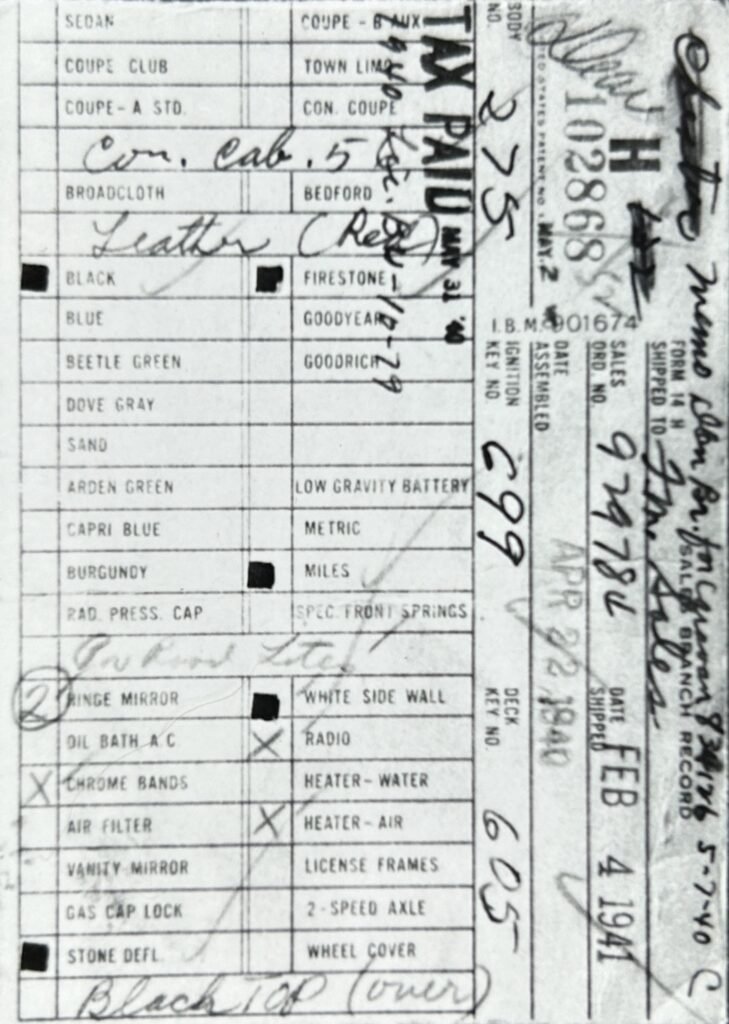 SEDAN COUPE - B AUX
COUPE CLUB TOWN LIMO
COUPE - A STD. CON. COUPE
Con. Cab. 5
BROADCLOTH BEDFORD
Leather (Red)
BLACK FIRESTONE
BLUE GOODYEAR
BEETLE GREEN GOODRICH
DOVE GRAY
SAND
ARDEN GREEN LOW GRAVITY BATTERY
CAPRI BLUE METRIC
BURGUNDY MILES
RAD. PRESS. CAP SPEC. FRONT SPRINGS
2 HINGE MIRROR WHITE SIDE WALL
OIL BATH A.C X RADIO
X CHROME BANDS HEATER - WATER
AIR FILTER X HEATER - AIR
VANITY MIRROR LICENSE FRAMES
GAS CAP LOCK 2 - SPEED AXLE
STONE DEFL. WHEEL COVER
Black Top (over)
TAX PAID MAY 31 '40
BODY NO. 275
IGNITION KEY NO 699
DECK KEY NO 605
H 102868
I.B.M. 901674
DATE ASSEMBLED APR 22 1940
SALES ORD. NO.
DATE SHIPPED FEB 4 1941
FORM 14 H
SHIPPED TO
SALES BRANCH RECORD
5-7-40